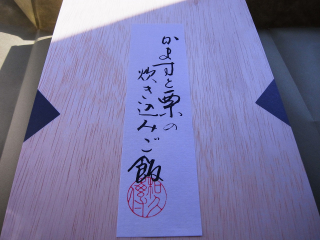 かますと栗の
炊き込みご飯